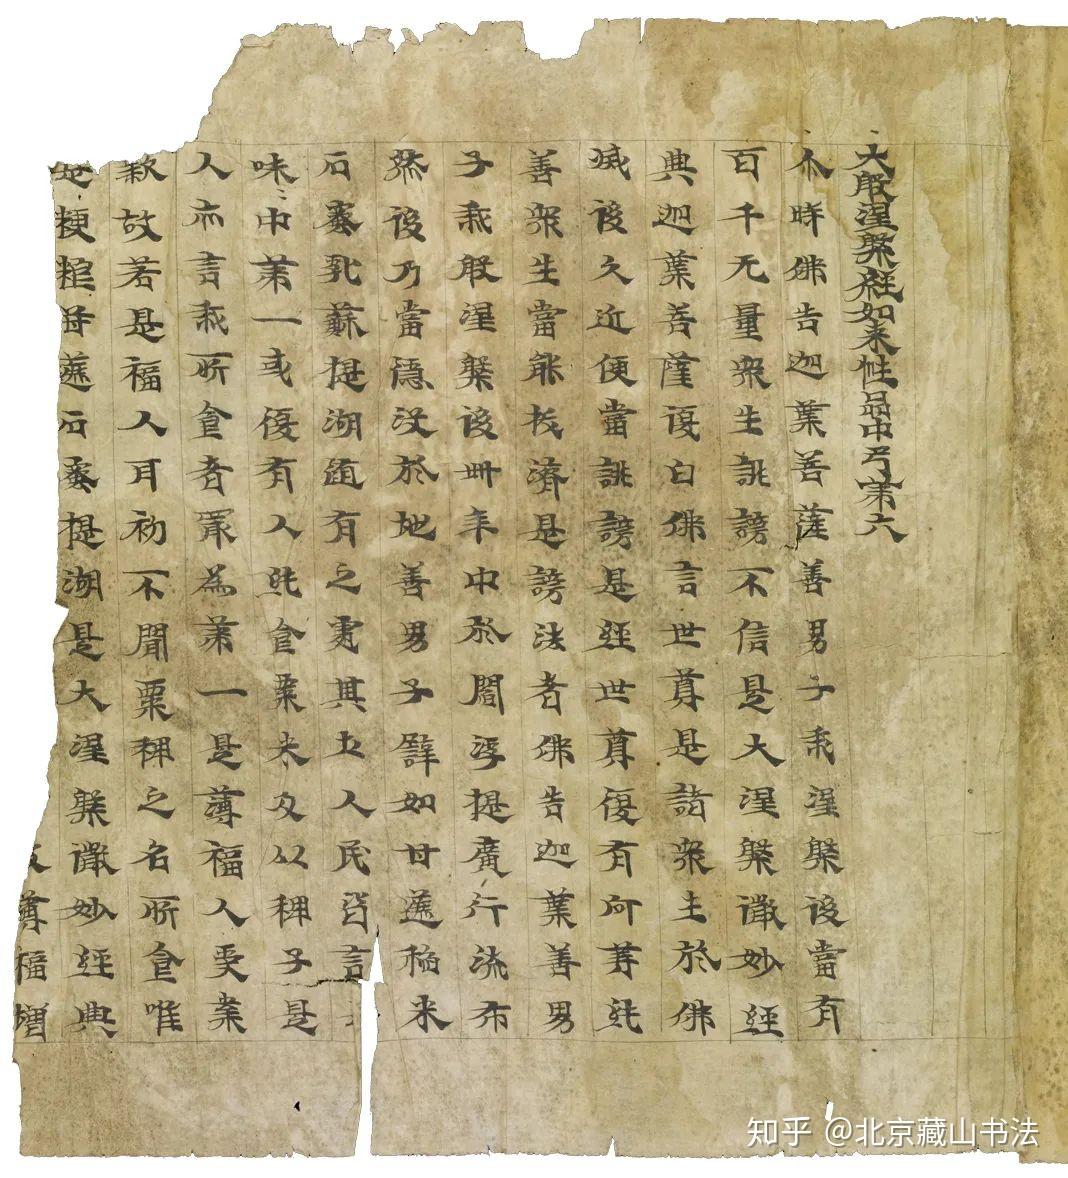 大般涅槃經如来性品中弓第六
尒時佛告迦葉菩薩善男子我涅槃後當有
百千无量衆生誹謗不信是大涅槃微妙經
典迦葉菩薩復白佛言世尊是諸衆生於佛
滅後久近便當誹謗是經世尊復有何等純
善衆生當能拔濟是謗法者佛告迦葉善男
子我般涅槃後卌年中於閻浮提廣行流布
然後乃當隱没於地善男子譬如甘蔗稻米
石蜜乳蘇提湖随有之處其土人民皆言
味中第一或復有人純食粟米及以稗子是
人亦言我所食者最為第一是薄福人受業
報故若是福人耳初不聞粟稗之名所食唯
是粳粮甘蔗石蜜提湖是大涅槃微妙經典
薄福增
知乎 @北京藏山书法